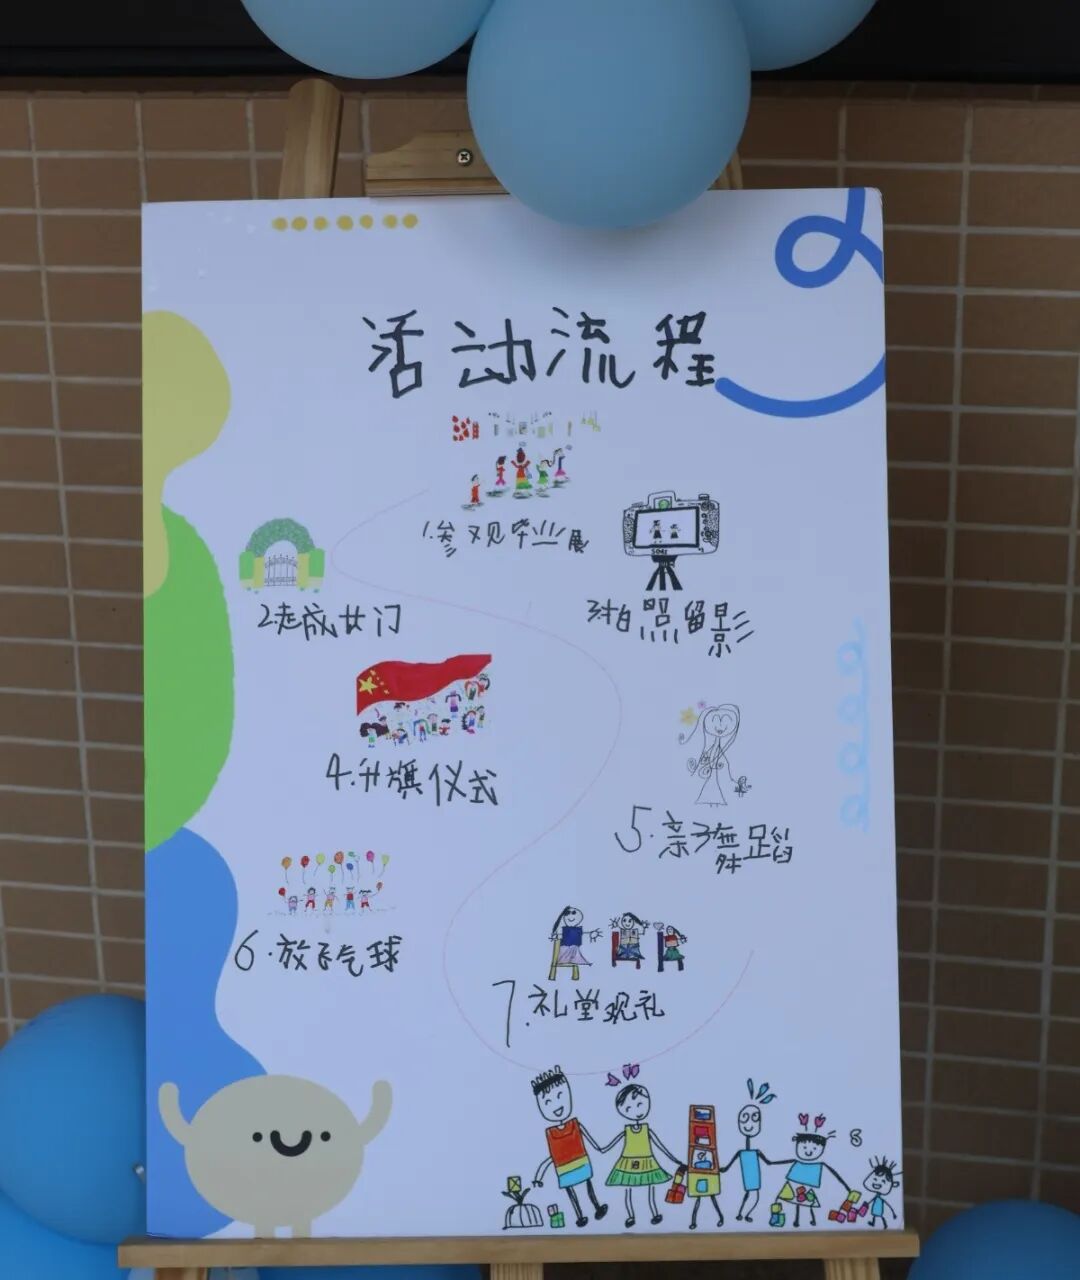 活动流程
1.参观毕业展
2.走成女门
3.拍照留影
4.升旗仪式
5.亲子舞蹈
6.放飞气球
7.礼堂观礼